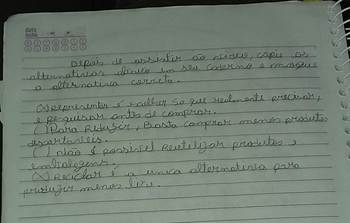 Depois de assistir ao vídeo, copie as
alternativas abaixo em seu caderno e marque
a alternativa correta.
(X) representar é melhor se que realmente precisar,
e pesquisar antes de comprar.
( ) Para Reduzir, Basta comprar menos produtos
descartáveis.
( ) não é possível Reutilizar produtos e
embalagens.
(X) Reciclar é a unica alternativa para
produzir menos lixo.